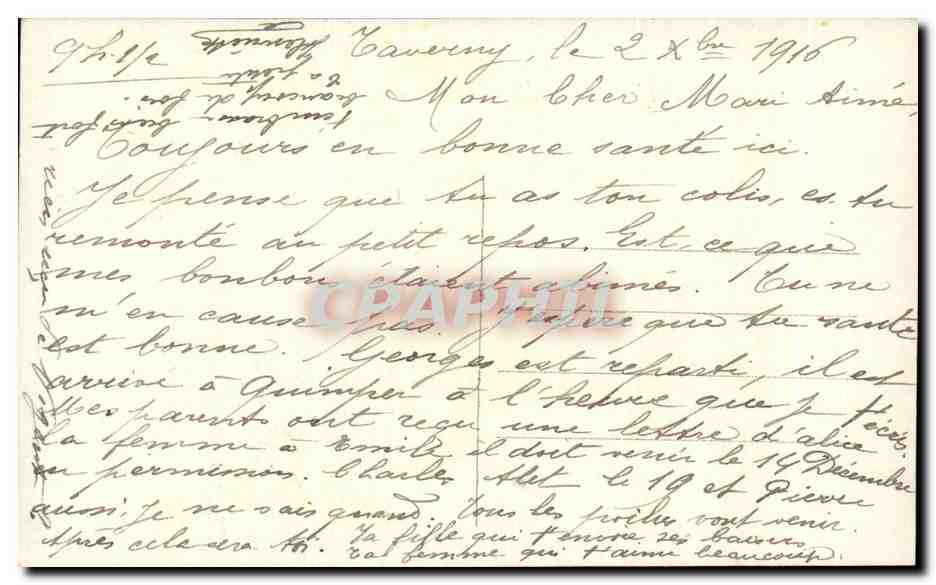 9h 1/2
Taverny, le 2 Xbre 1916
Mon Cher Mari Aimé,
Toujours en bonne santé ici.
Je pense que tu as ton colis, es tu
remonté au petit repos. Est, ce que
mes bonbons étaient abimés. Tu ne
m'en cause pas. J'espère que tu santé
est bonne. Georges est reparti, il est
arrivé à Quimper à l'heure que je t'écris.
Mes parents ont reçu une lettre d'alice
La femme à Emile il doit venir le 14 Décembre
en permission. Charles Alet le 19 et Pierre
aussi, je ne sais quand. Tous les poilus vont venir.
Après cela sera toi. Ta fille qui t'envoie ses baisers
Ta femme qui t'aime beaucoup.
t'embrasse bien fort
beaucoup de fois.
Ta petite
Henriette
CPAPHIL